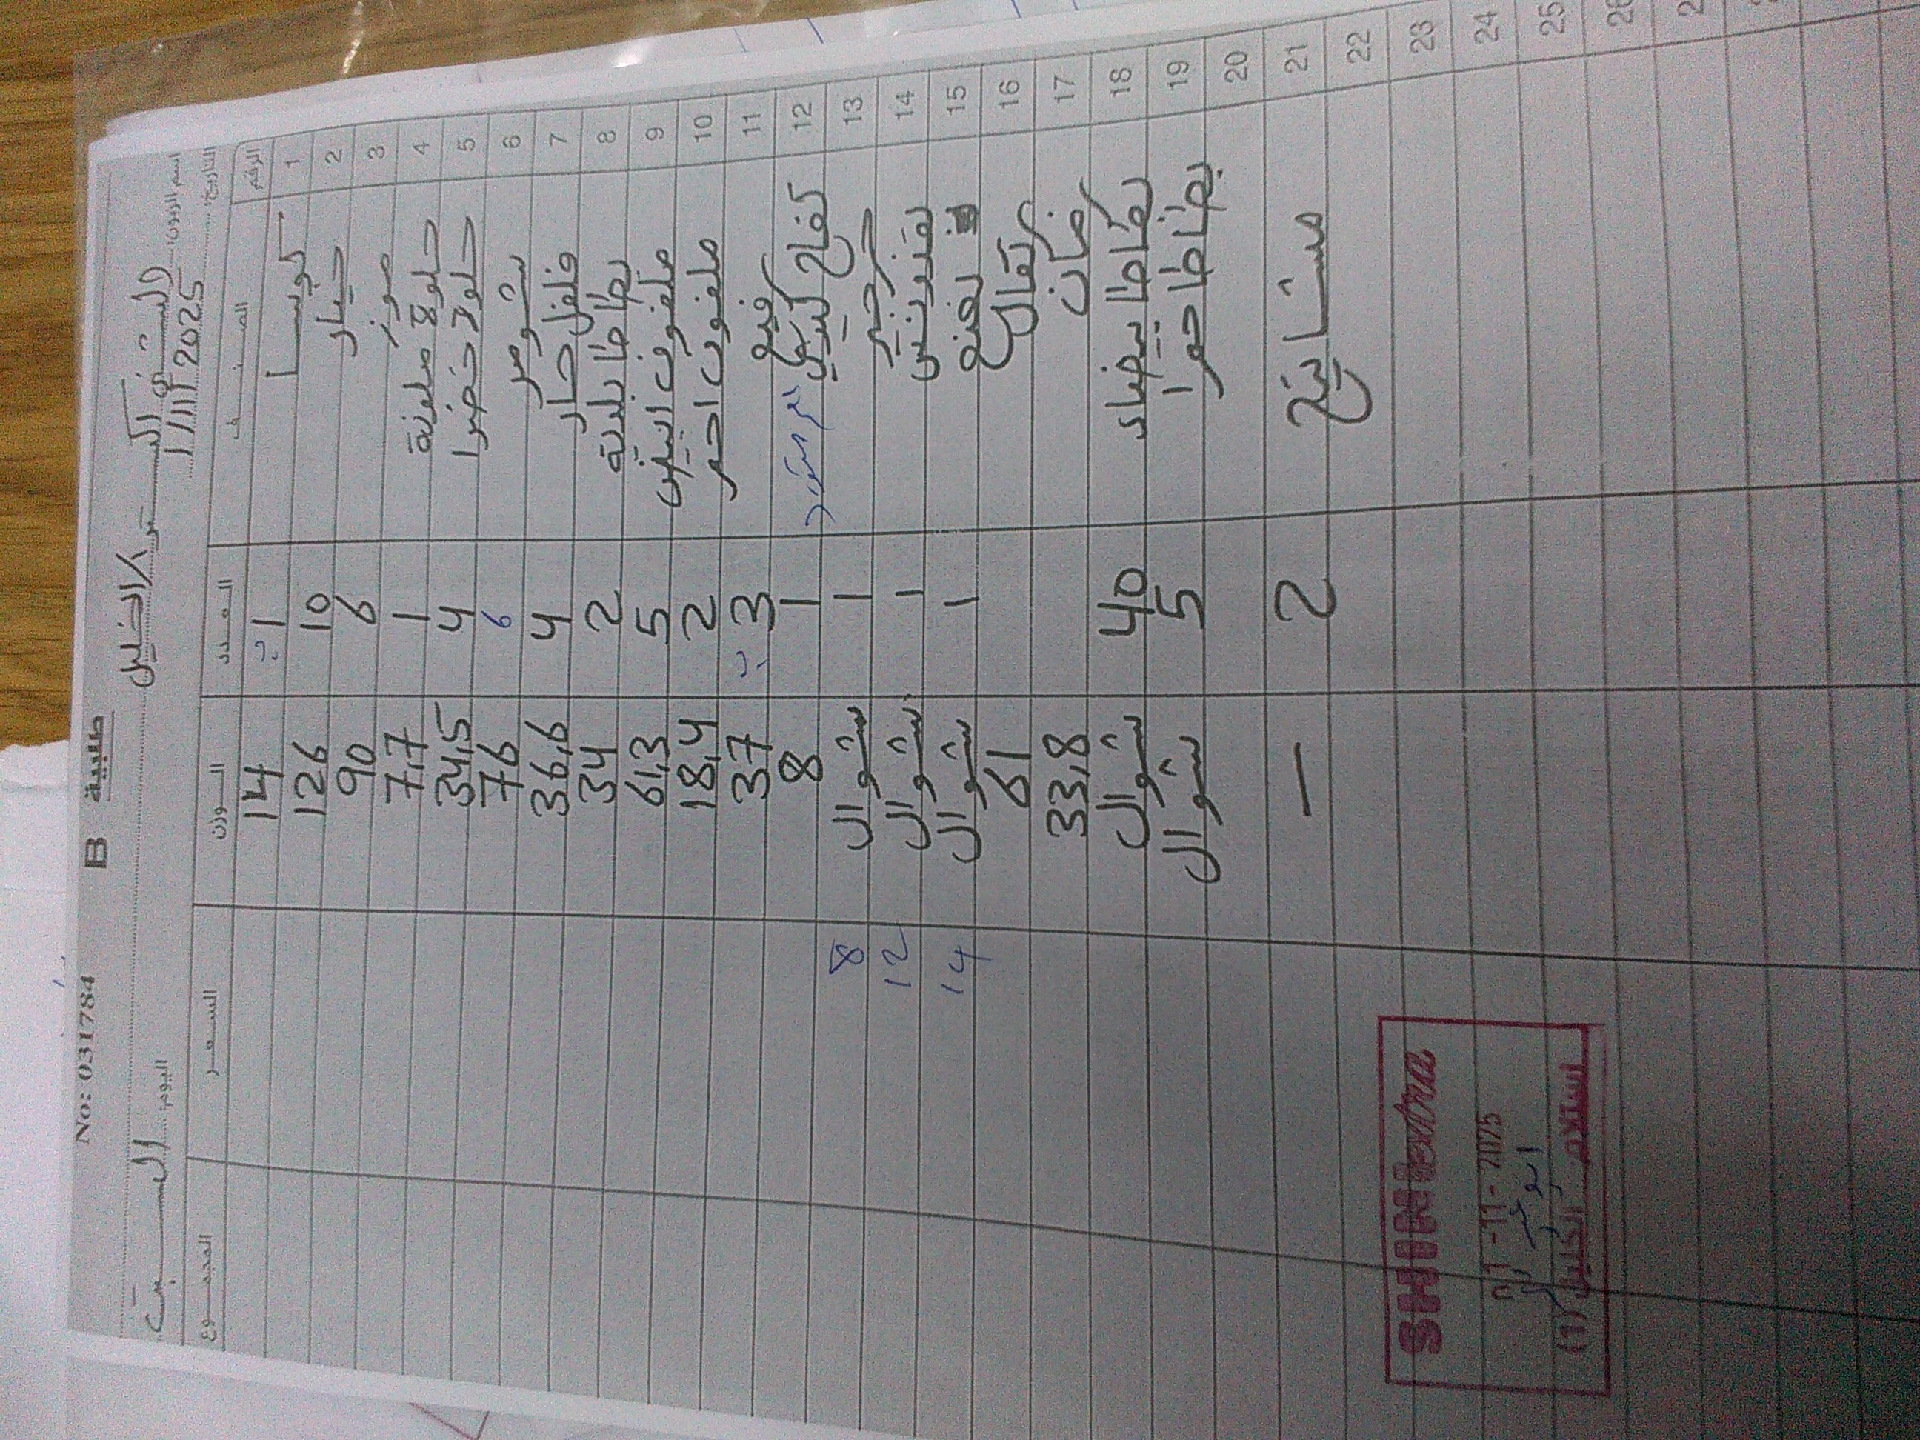 No: 031784 B طلبية
اليوم: السبت اسم الزبون: الشني اكسترا / الخليل
التاريخ: 1/11/2025
الرقم الصنف العدد الوزن السعر المجموع
1 كوسا 1 14
2 خيار 10 126
3 موز 6 90
4 حلوة ملونة 1 7,7
5 حلوة خضرا 4 34,5
6 شومر 6 76
7 فلفل حار 4 36,6
8 بطاطا بلدية 2 34
9 ملفوف ابيض 5 61,3
10 ملفوف احمر 2 18,4
11 3 37
12 تفاح 1 8
13 1 شوال 8
14 1 شوال 12
15 1 شوال 14
16 61
17 33,8
18 بطاطا بيضاء 40 شوال
19 بطاطا حمرا 5 شوال
20
21 مشاتيح 2 —
22
23
24
25
26
SHINIextra
01-11-2025
استلام الخليل (1)